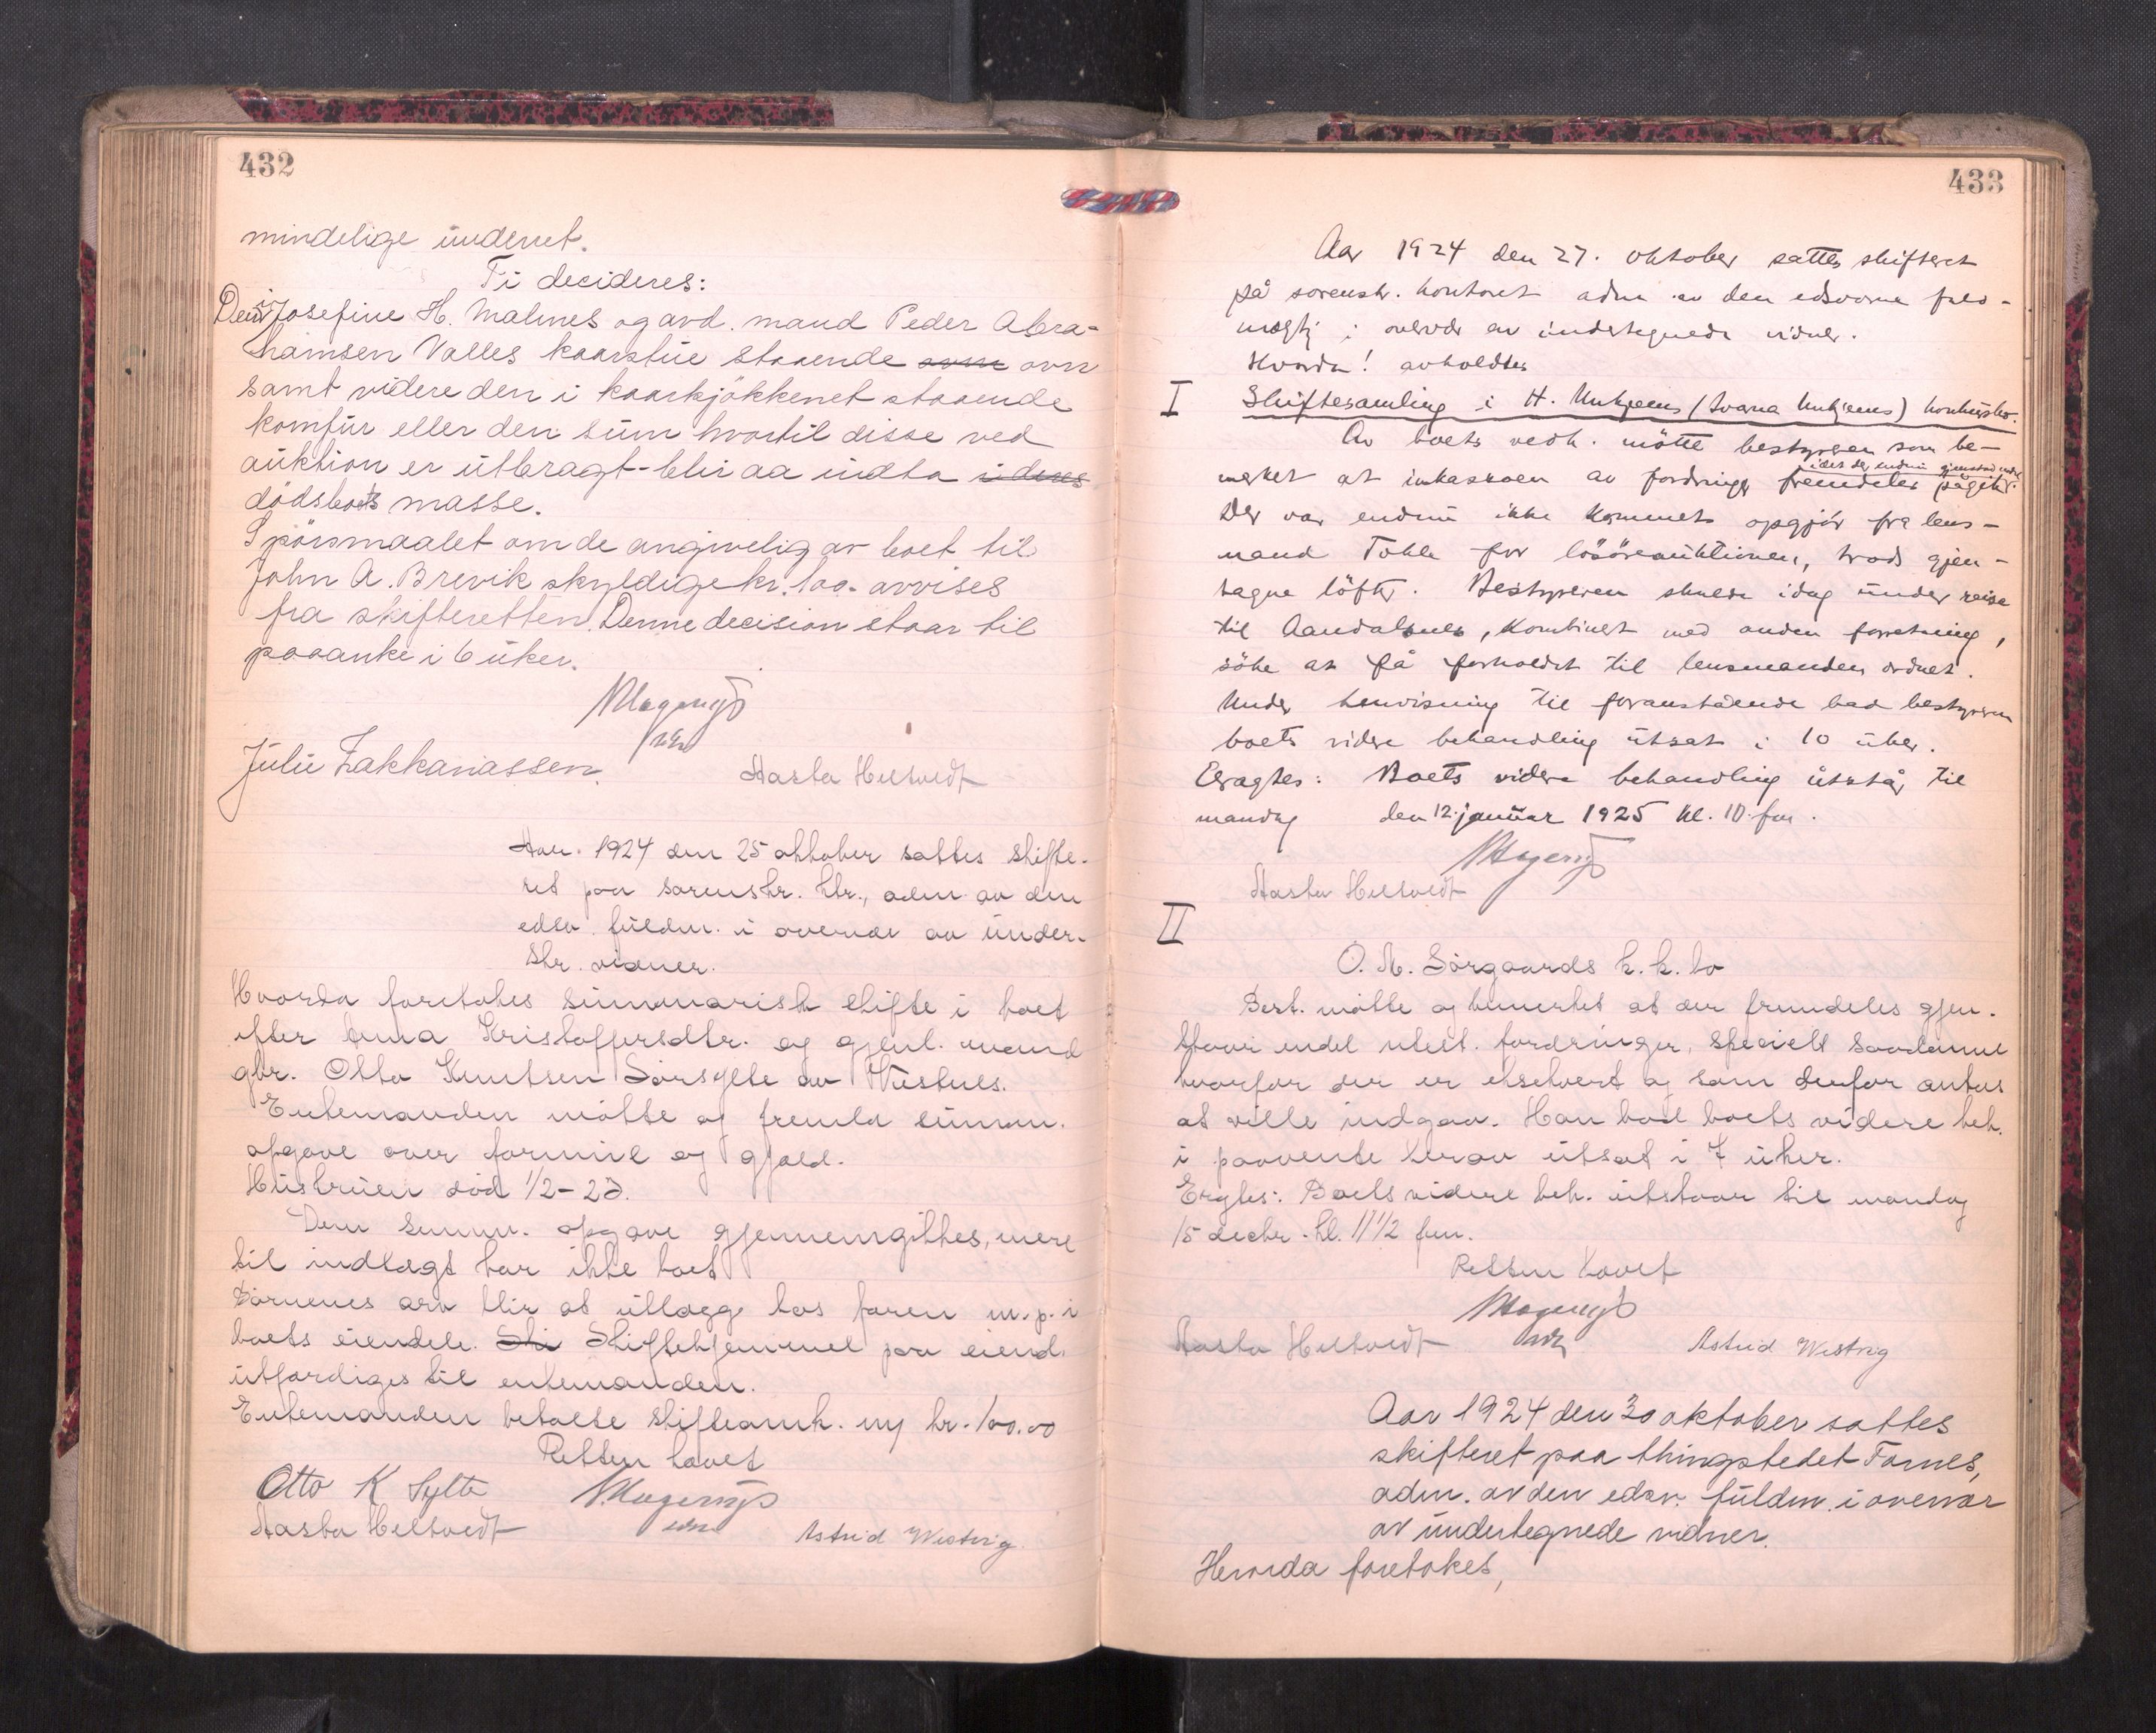 432
mindelige underret.
Ti decideres:
Den i Josefine H. Malmes og avd. mand Peder Abra-
hamsen Valles kaarstue staaende som ovn
samt videre den i kaarkjøkkenet staaende
komfur eller den sum hvortil disse ved
auktion er utbragt - blir aa indta i deres
dödsboets masse.
Spörsmaalet om de angivelig av boet til
John A. Brevik skyldige kr. 100.- avvises
fra skifteretten. Denne decision staar til
paaanke i 6 uker.
Julie Zakkariassen. Aasta Heltvedt
Aar 1924 den 25 oktober sattes skifte-
ret paa sorenskr. ktr., adm. av den
edsv. fuldm. i overvær av under-
skr. vidner.
Hvorda foretokes summarisk skifte i boet
efter Anna Kristoffersdtr. og gjenl. mand
gbr. Otto Knutsen Sørsylte av Vestnes.
Enkemanden møtte og fremla summ.
opgave over formue og gjæld.
Hustruen død 1/2-23.
Den summ. opgave gjennemgikkes, mere
til indtægt har ikke boet
Børnenes arv blir at utlægge hos faren m. p. i
boets eiendele. Ski Skiftehjemmel paa eiend.
utfærdiges til enkemanden.
Enkemanden betalte skifteomk. kr. 100.00
Retten hævet
Otto K Sylte
Aasta Heltvedt Astrid Westvig
433
Aar 1924 den 27. oktober sattes skifteret
på sorenskr. kontoret adm. av den edsvorne fuld-
mægtj i overvær av undertegnede vidner.
Hvorda! avholdtes
I Skiftesamling i H. Unhjems (Ivara Unhjems) konkursbo.
Av boets vedk. mötte bestyreren som be-
merket at inkassoen av fordringer fremdeles pågikk.
Der var endnu ikke kommet opgjör fra lens-
mand Tokle for lösöreauktionen, trods gjen-
tagne löfter. Bestyreren skulde idag under reise
til Aandalsnes, kombinert med anden forretning,
söke at få forholdet til lensmanden ordnet.
Under henvisning til foranstående bad bestyreren
boets videre behandling utsat i 10 uker.
Eragtes: Boets videre behandling utstår til
mandag den 12. januar 1925 kl. 10 fm.
Aasta Heltvedt
II
O. A. Sörgaards k.k. bo
Best. møtte og bemerket at der fremdeles gjen-
staar endel utest. fordringer, specielt saadanne
hvorfor der er eksekvert og som derfor antas
at ville indgaa. Han bad boets videre beh.
i paavente herav utsat i 7 uker.
Eragtes: Boets videre beh. utstaar til mandag
15 decbr. kl. 11 1/2 fm.
Retten hævet
Aasta Heltvedt Astrid Westvig
Aar 1924 den 30 oktober sattes
skifteret paa thingstedet Farnes,
adm. av den edsv. fuldm. i overvær
av undertegnede vidner.
Hvorda foretokes,